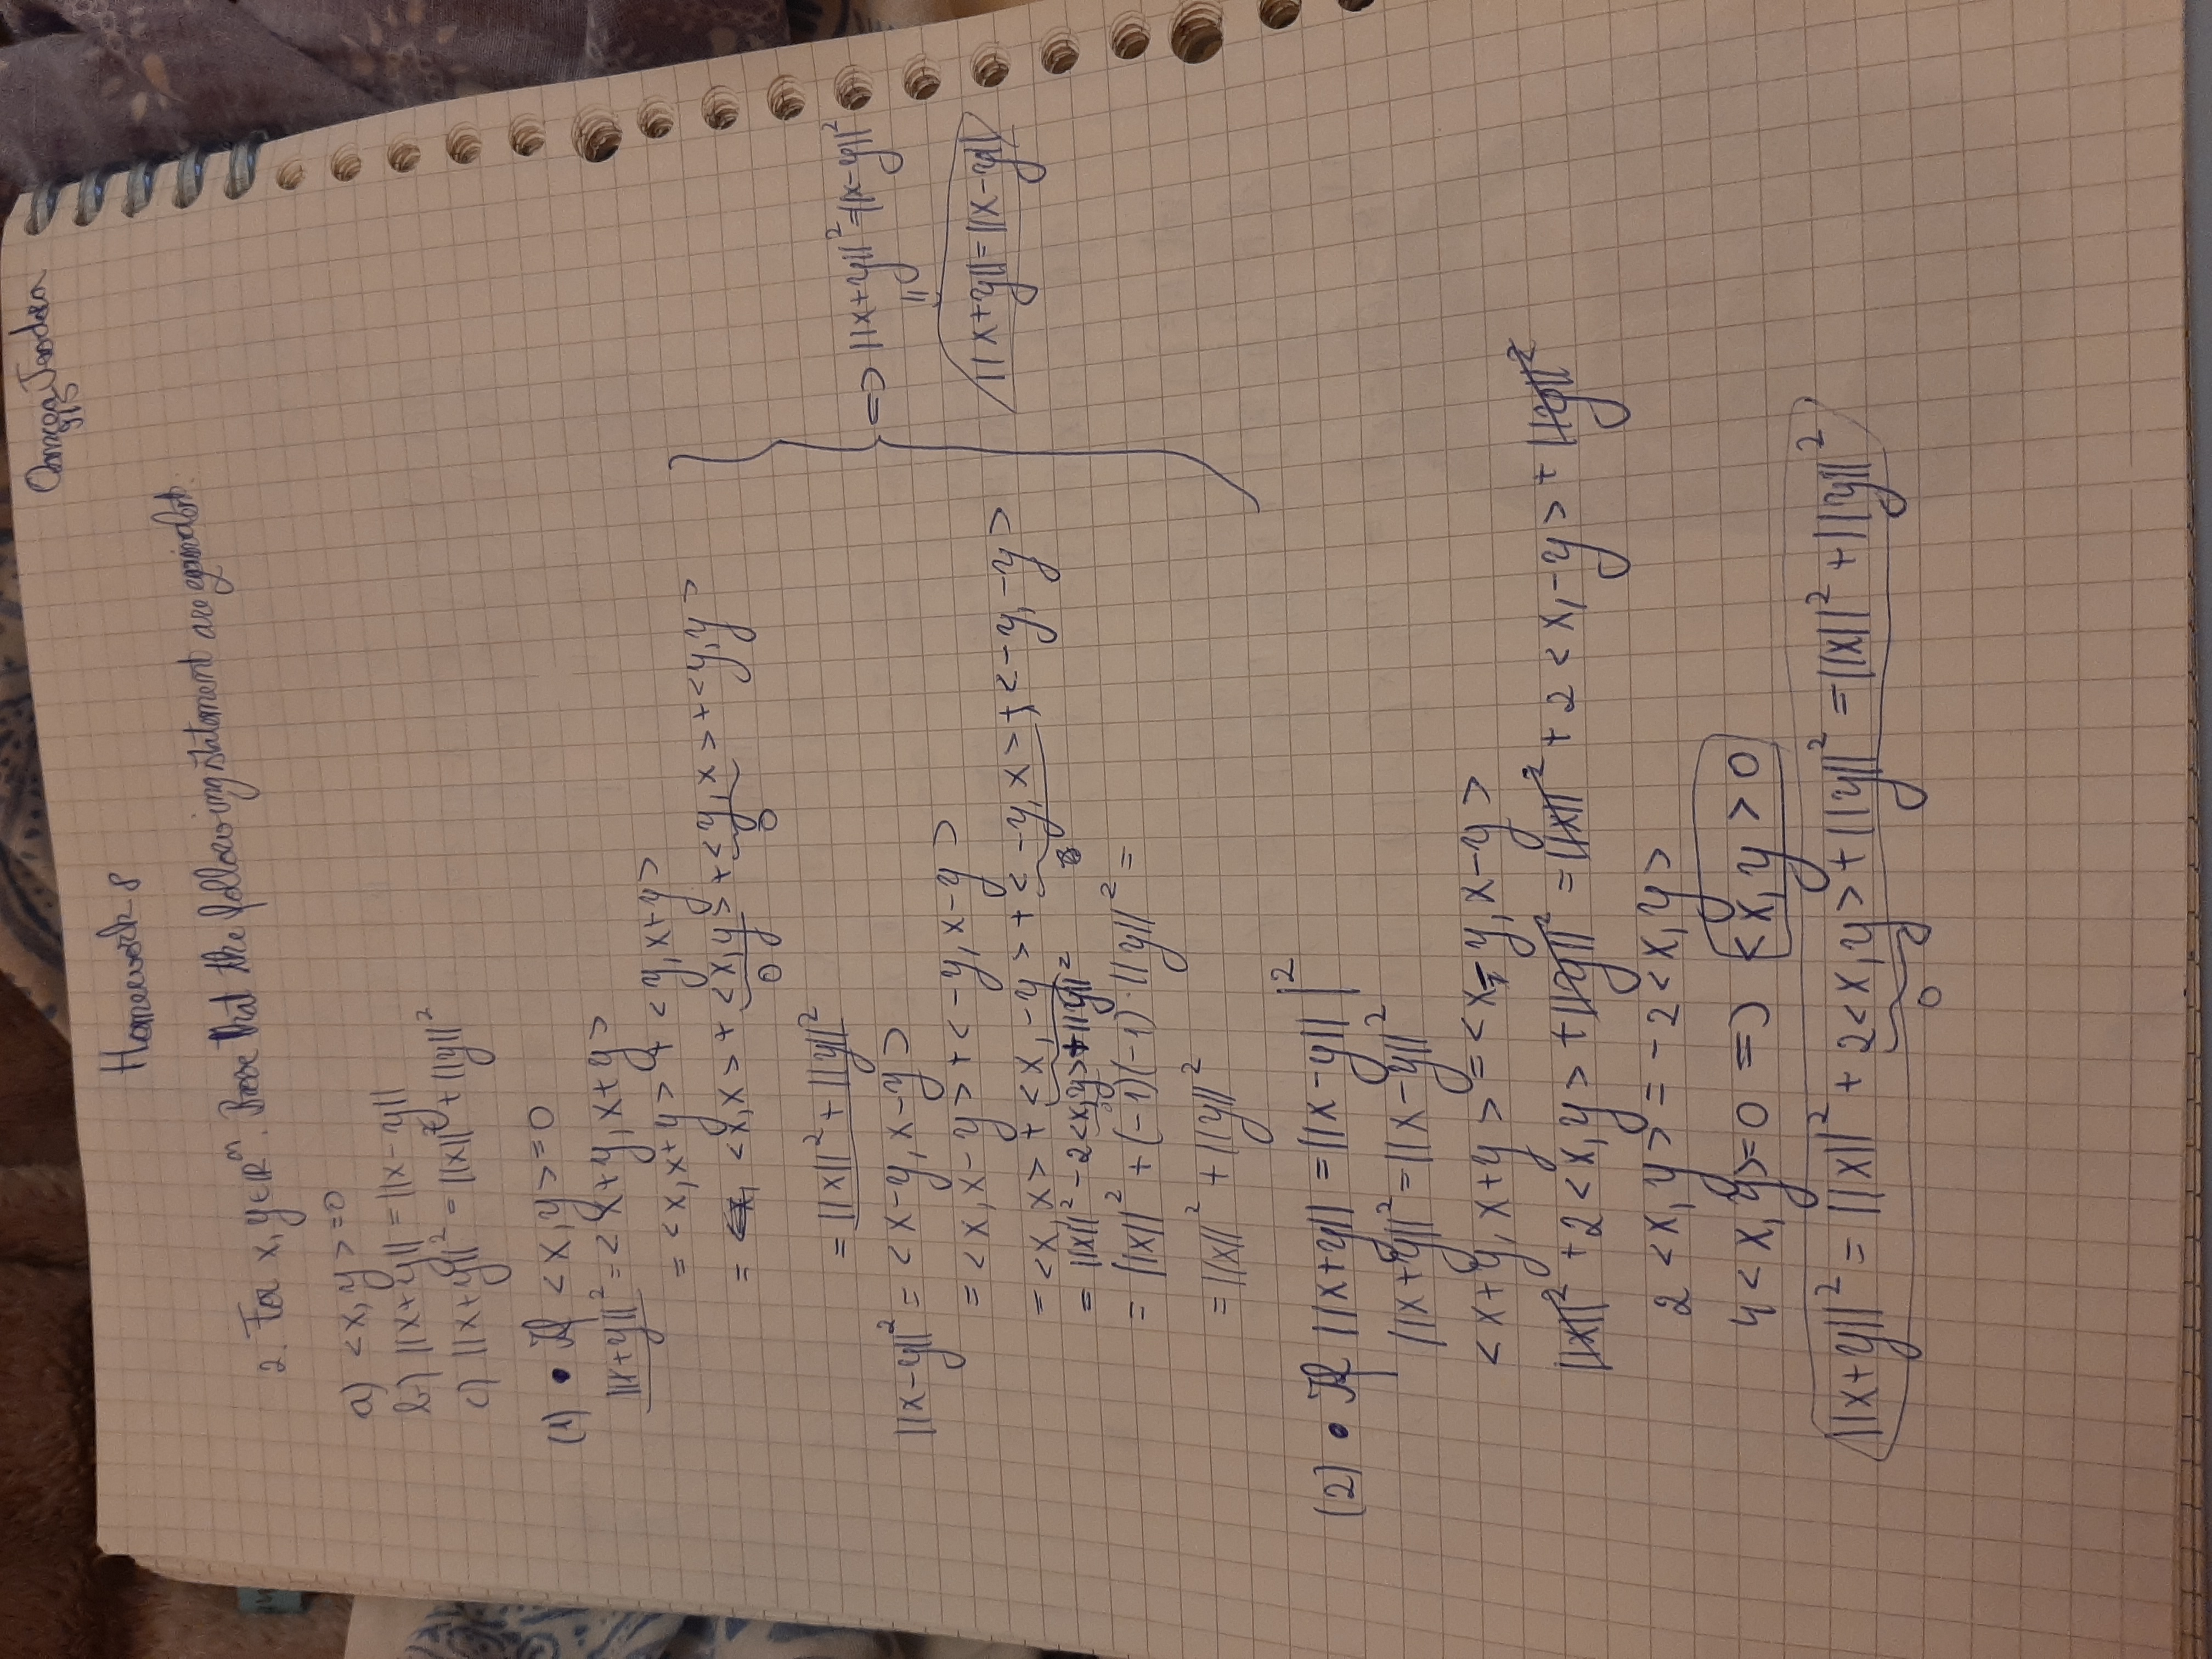 915
Homework 8
2. For x, y ∈ ℝⁿ. Prove that the following statement are equivalent.
a) <x, y> = 0
b) ||x+y|| = ||x-y||
c) ||x+y||² = ||x||² + ||y||²
(1) • If <x, y> = 0
||x+y||² = <x+y, x+y>
= <x, x+y> + <y, x+y>
= <x, x> + <x, y> + <y, x> + <y, y>
0 0
= ||x||² + ||y||²
||x-y||² = <x-y, x-y>
= <x, x-y> + <-y, x-y>
= <x, x> + <x, -y> + <-y, x> + <-y, -y>
= ||x||² - 2<x, y> + ||y||²
0
= ||x||² + (-1)(-1) · ||y||² =
= ||x||² + ||y||²
=> ||x+y||² = ||x-y||²
||x+y|| = ||x-y||
(2) • If ||x+y|| = ||x-y|| |²
||x+y||² = ||x-y||²
<x+y, x+y> = <x-y, x-y>
||x||² + 2<x, y> + ||y||² = ||x||² + 2<x, -y> + ||y||²
2<x, y> = -2<x, y>
4<x, y> = 0 => <x, y> 0
||x+y||² = ||x||² + 2<x, y> + ||y||² = ||x||² + ||y||²
0